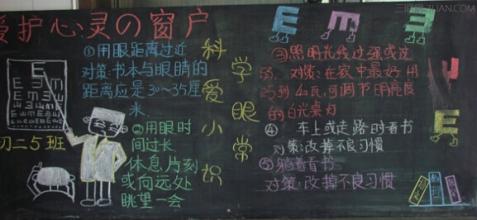 爱护心灵の窗户
①用眼距离过近
对策:书本与眼睛的
距离应是30~35厘
米.
②用眼时
间过长
休息片刻
或向远处
眺望一会
初二5班
科学爱眼小常识
③照明光线过强或过
弱. 对策:在家中最好用
25到40瓦,可调节明亮度
的白光桌灯
④ 车上或走路时看书
对策:改掉不良习惯
⑤躺着看书
对策:改掉不良习惯
E m 3
E